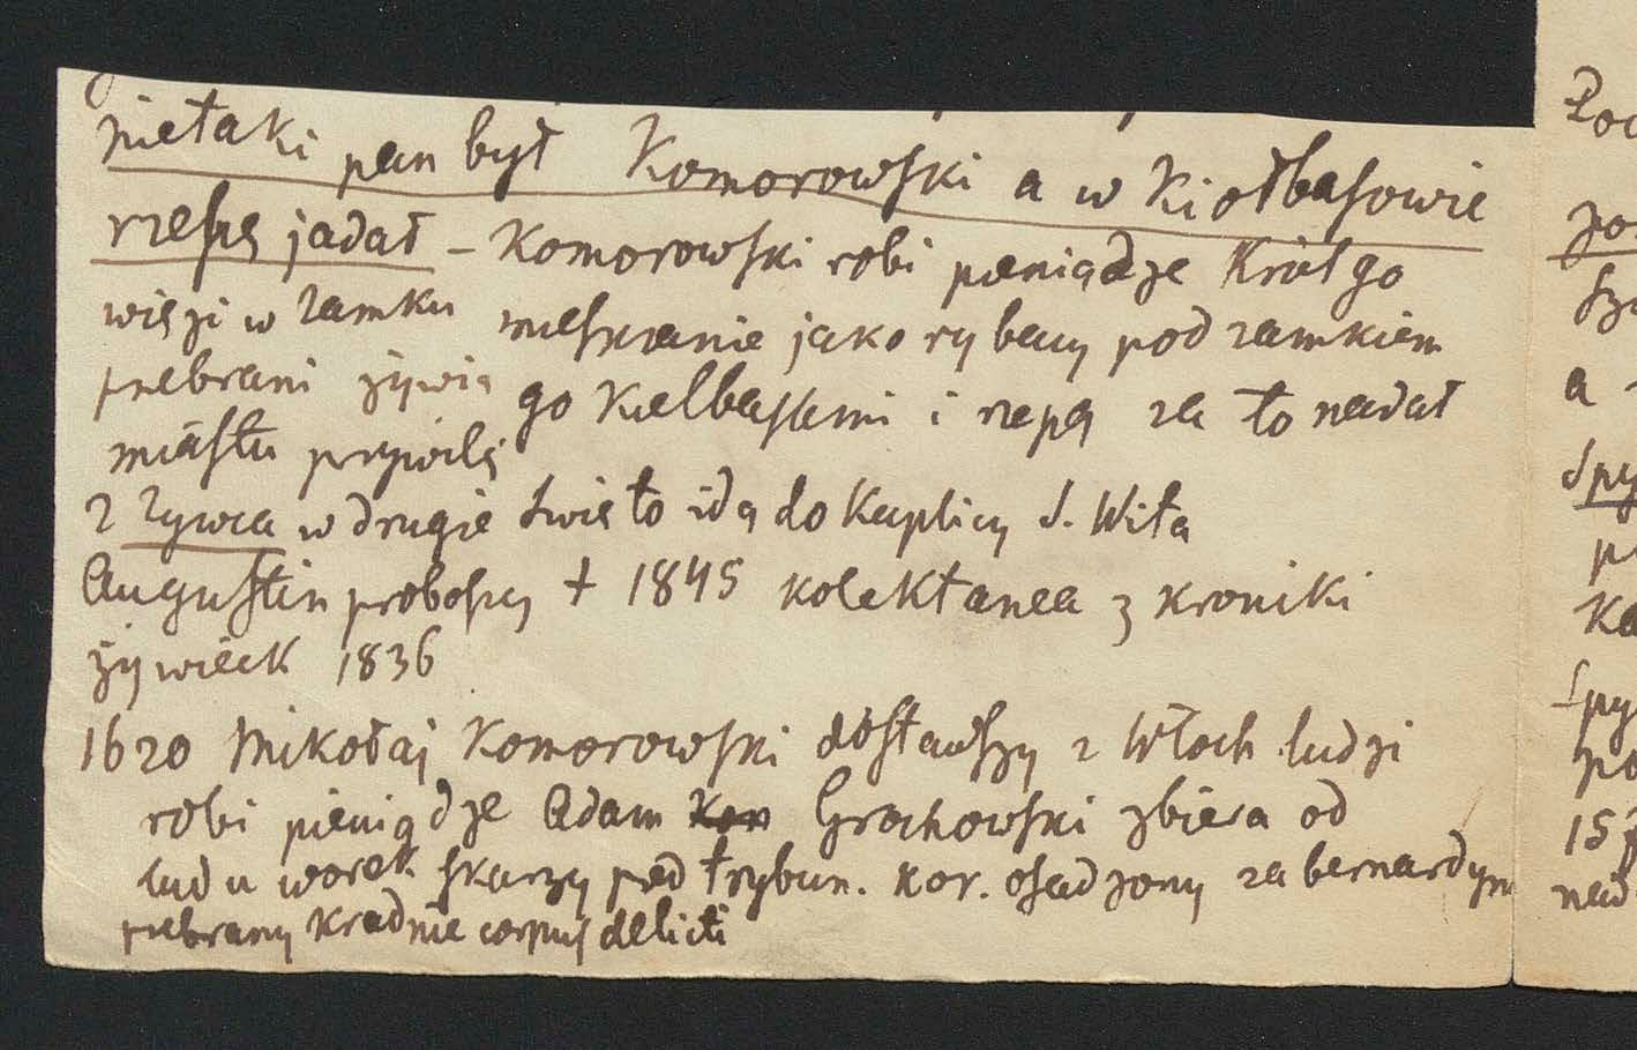 nietaki pan był Komorowski a w Kiołbasowie
rzepę jadał – Komorowski robi pieniądze Król go
więzi w zamku mieszczanie jako rybacy pod zamkiem
przebrani żywią go kiełbasami i rzepą za to nadał
miastu przywilej
z Żywca w drugie święto idą do Kaplicy S. Wita
Augustin proboszcz † 1845 kolektanea z kroniki
żywieck 1836
1620 Mikołaj Komorowski dostawszy z Włoch ludzi
robi pieniądze Adam Kom Grochowski zbiera od
ludu worek skarży pred trybun. kor. osadzony za bernardyn
przebrany kradnie corpus delicti
Spy
a